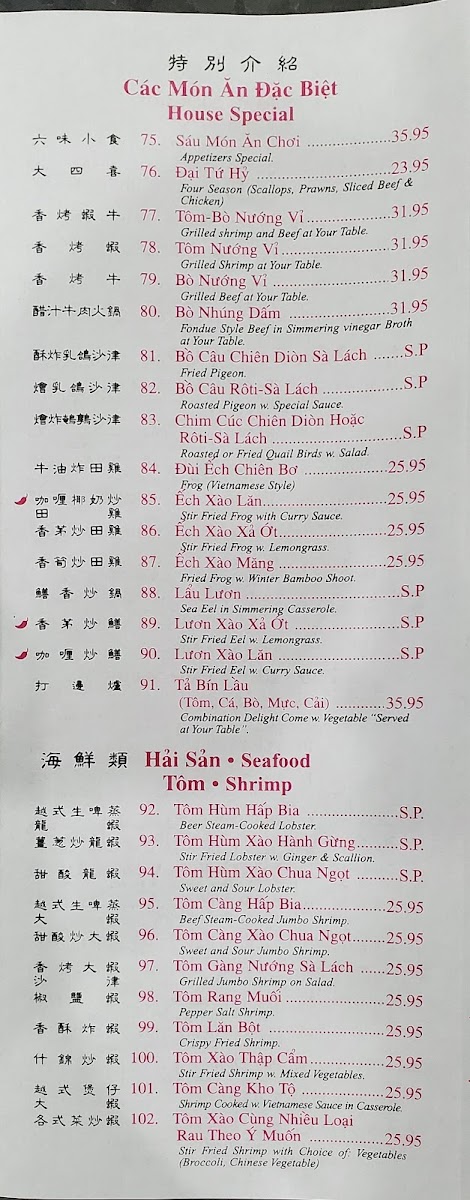 特別介紹
Các Món Ăn Đặc Biệt
House Special
六味小食 75. Sáu Món Ăn Chơi ....................35.95
Appetizers Special.
大四喜 76. Đại Tứ Hỷ ....................23.95
Four Season (Scallops, Prawns, Sliced Beef &
Chicken)
香烤蝦牛 77. Tôm-Bò Nướng Vỉ ....................31.95
Grilled shrimp and Beef at Your Table.
香烤蝦 78. Tôm Nướng Vỉ ....................31.95
Grilled Shrimp at Your Table.
香烤牛 79. Bò Nướng Vỉ ....................31.95
Grilled Beef at Your Table.
醋汁牛肉火鍋 80. Bò Nhúng Dấm ....................31.95
Fondue Style Beef in Simmering vinegar Broth
at Your Table.
酥炸乳鴿沙津 81. Bồ Câu Chiên Diòn Sà Lách .......S.P
Fried Pigeon.
燴乳鴿沙津 82. Bồ Câu Rôti-Sà Lách ....................S.P
Roasted Pigeon w. Special Sauce.
燴炸鵪鶉沙津 83. Chim Cúc Chiên Diòn Hoặc
Rôti-Sà Lách ....................S.P
Roasted or Fried Quail Birds w. Salad.
牛油炸田雞 84. Đùi Ếch Chiên Bơ ....................25.95
Frog (Vietnamese Style)
咖喱椰奶炒 85. Ếch Xào Lăn ....................25.95
田雞 Stir Fried Frog with Curry Sauce.
香茅炒田雞 86. Ếch Xào Xả Ớt ....................25.95
Stir Fried Frog w. Lemongrass.
香筍炒田雞 87. Ếch Xào Măng ....................25.95
Fried Frog w. Winter Bamboo Shoot.
鱔香炒鍋 88. Lẩu Lươn ....................S.P
Sea Eel in Simmering Casserole.
香茅炒鱔 89. Lươn Xào Xả Ớt ....................S.P
Stir Fried Eel w. Lemongrass.
咖喱炒鱔 90. Lươn Xào Lăn ....................S.P
Stir Fried Eel w. Curry Sauce.
打邊爐 91. Tả Bín Lầu
(Tôm, Cá, Bò, Mực, Cải) ............35.95
Combination Delight Come w. Vegetable "Served
at Your Table".
海鮮類 Hải Sản • Seafood
Tôm • Shrimp
越式生啤蒸 92. Tôm Hùm Hấp Bia ....................S.P.
龍蝦 Beer Steam-Cooked Lobster.
薑蔥炒龍蝦 93. Tôm Hùm Xào Hành Gừng.........S.P.
Stir Fried Lobster w. Ginger & Scallion.
甜酸龍蝦 94. Tôm Hùm Xào Chua Ngọt .........S.P.
Sweet and Sour Lobster.
越式生啤蒸 95. Tôm Càng Hấp Bia....................25.95
大蝦 Beef Steam-Cooked Jumbo Shrimp.
甜酸炒大蝦 96. Tôm Càng Xào Chua Ngọt.........25.95
Sweet and Sour Jumbo Shrimp.
香烤大蝦 97. Tôm Gàng Nướng Sà Lách .......25.95
沙津 Grilled Jumbo Shrimp on Salad.
椒鹽蝦 98. Tôm Rang Muối ....................25.95
Pepper Salt Shrimp.
香酥炸蝦 99. Tôm Lăn Bột ....................25.95
Crispy Fried Shrimp.
什錦炒蝦 100. Tôm Xào Thập Cẩm....................25.95
Stir Fried Shrimp w. Mixed Vegetables.
越式煲仔 101. Tôm Càng Kho Tộ ....................25.95
大蝦 Shrimp Cooked w. Vietnamese Sauce in Casserole.
各式菜炒蝦 102. Tôm Xào Cùng Nhiêu Loại
Rau Theo Ý Muốn ....................25.95
Stir Fried Shrimp with Choice of: Vegetables
(Broccoli, Chinese Vegetable)